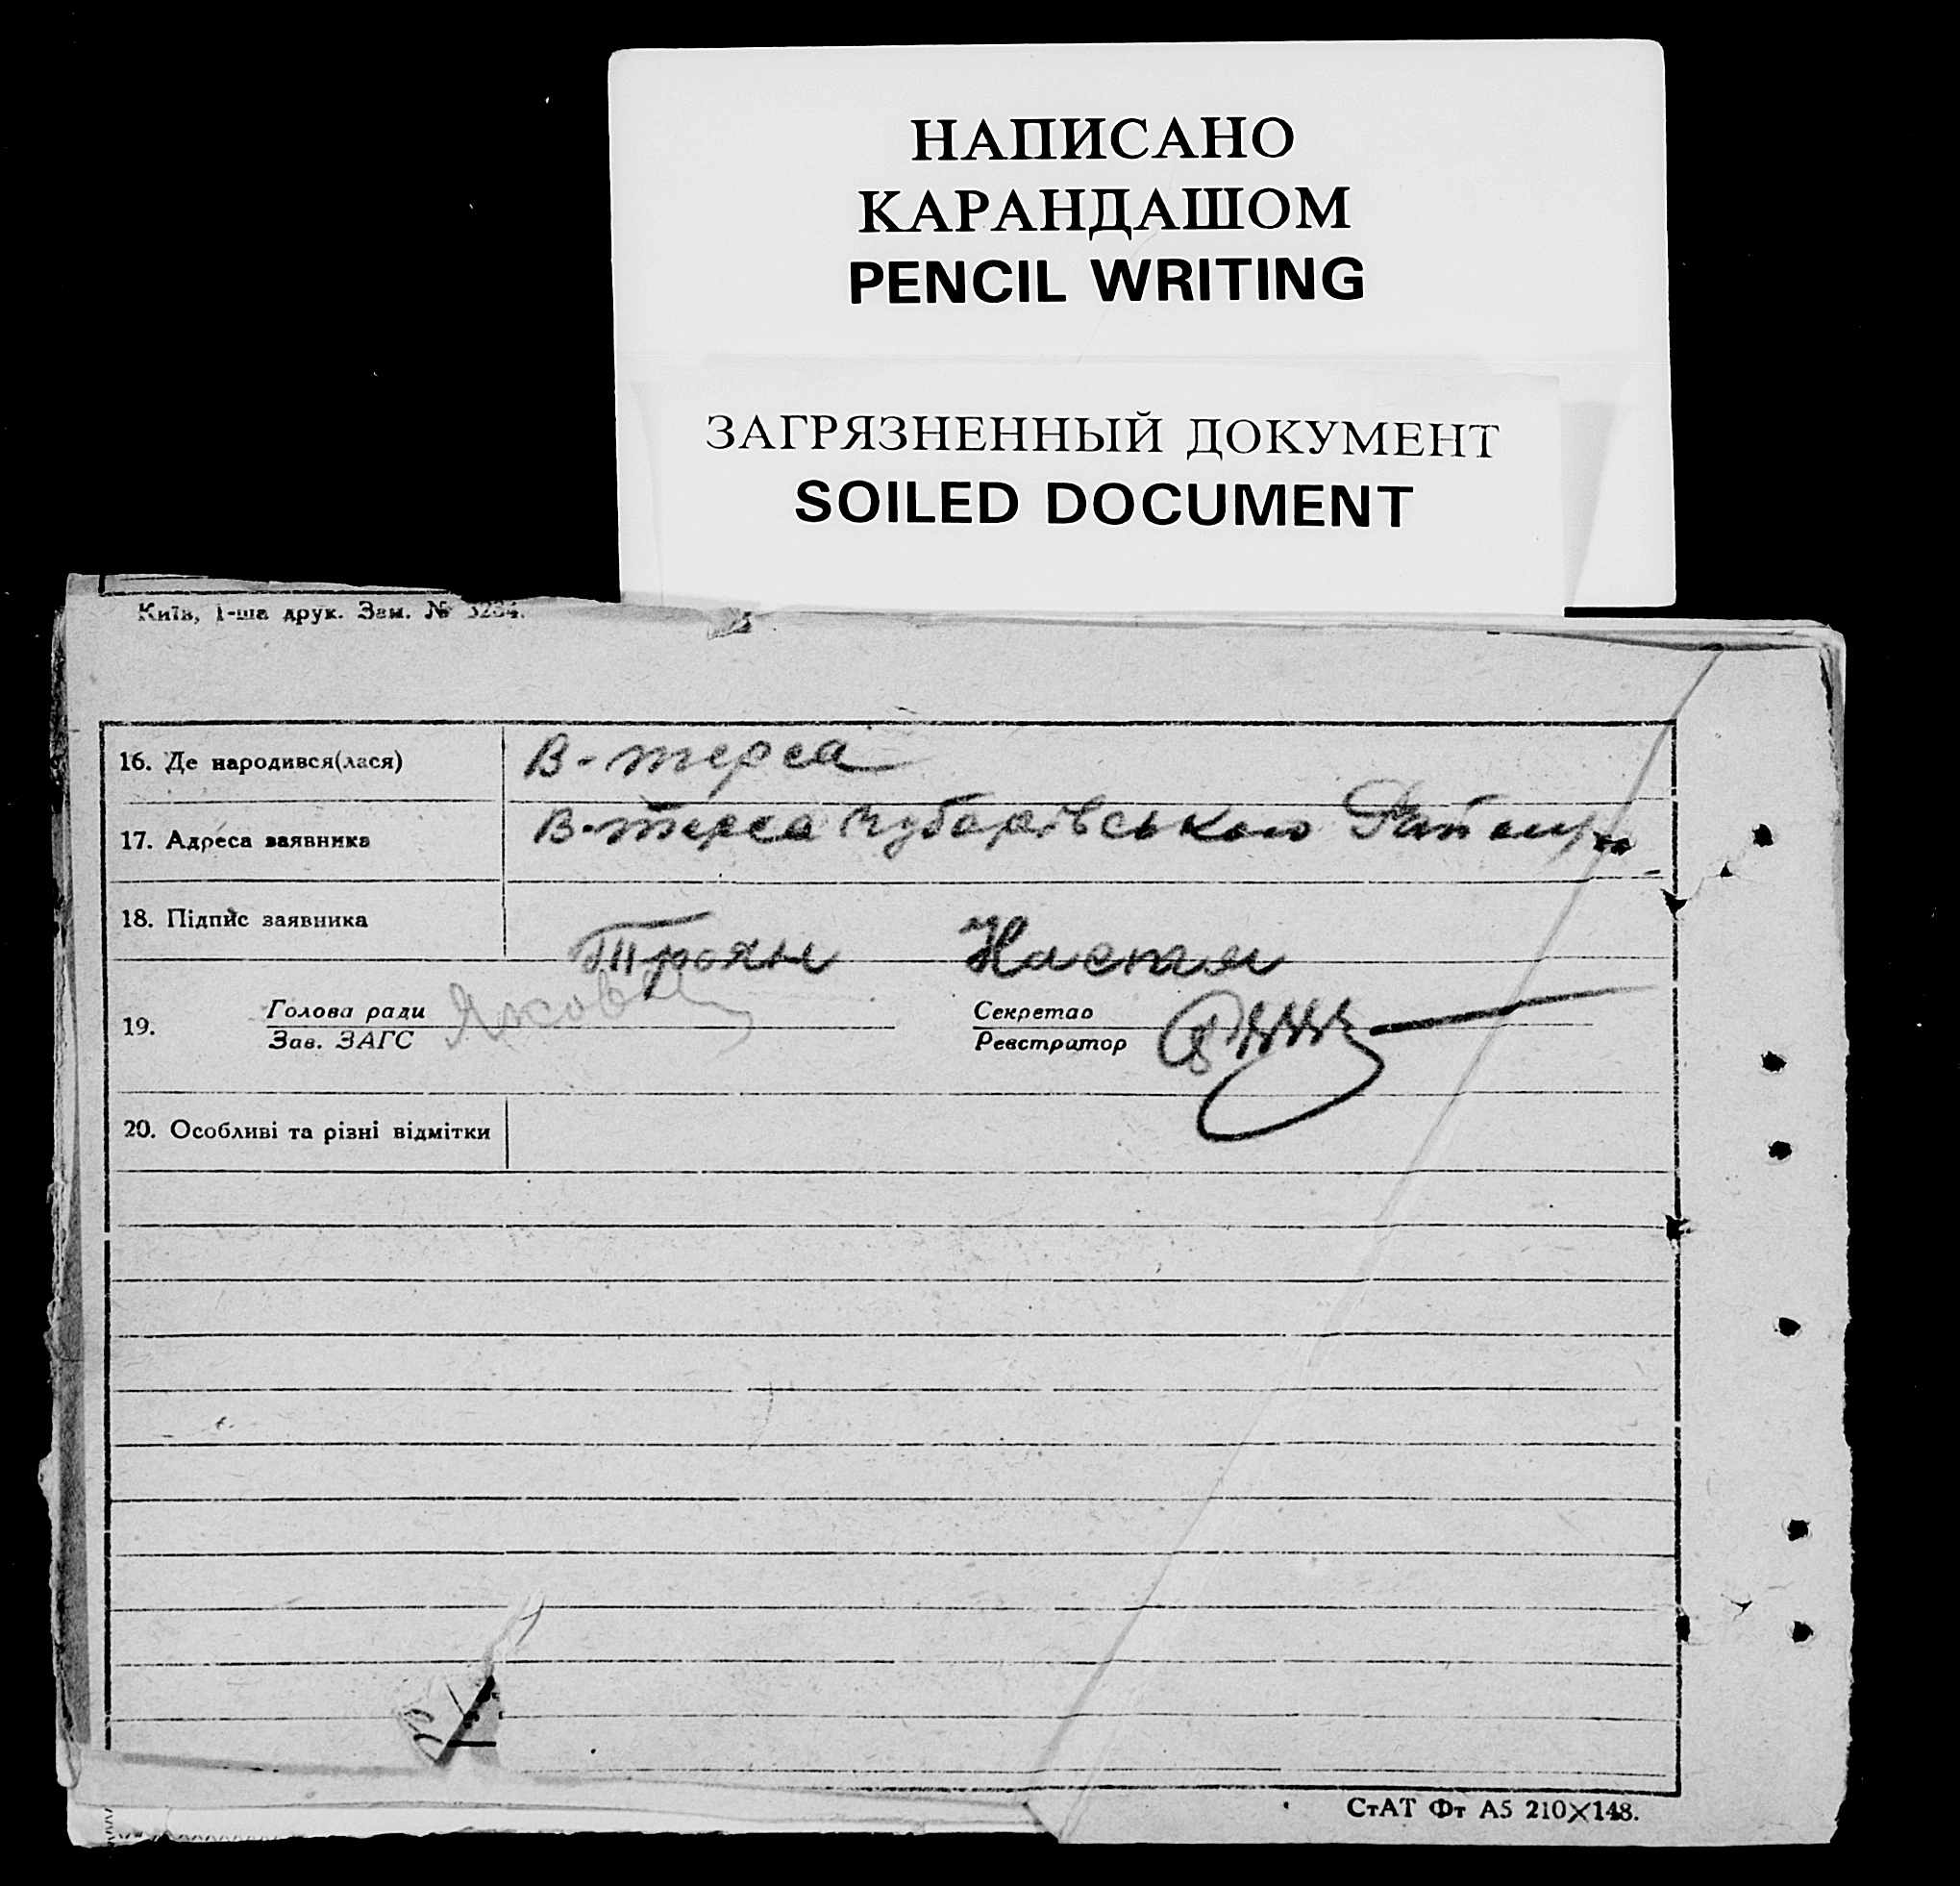 НАПИСАНО
КАРАНДАШОМ
PENCIL WRITING
ЗАГРЯЗНЕННЫЙ ДОКУМЕНТ
SOILED DOCUMENT
Київ, 1-ша друк. Зам. № 3284.
16. Де народився(лася) В-терса
17. Адреса заявника В-терса Чубарівського Району
18. Підпис заявника Троян Настя
Голова ради Секретар
19.
Зав. ЗАГС Реєстратор
20. Особливі та різні відмітки
СтАТ Фт А5 210×148.